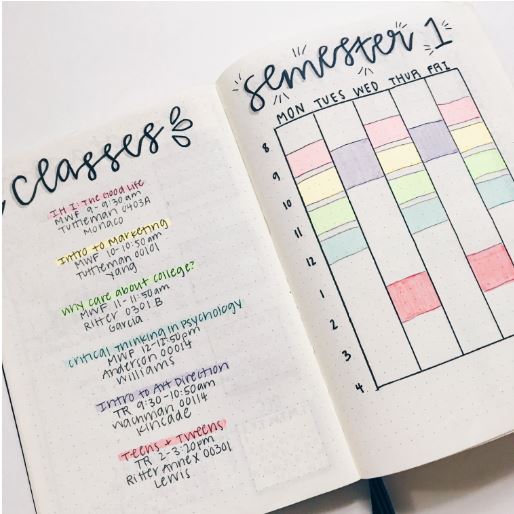 classes
IH I: The Good Life
MWF 9-9:30am
Tuttleman 0403A
Monaco
Intro to Marketing
MWF 10-10:50am
Tuttleman 00101
Yang
Why care about college?
MWF 11-11:50am
Ritter 0301 B
Garcia
Critical Thinking in Psychology
MWF 12-12:50pm
Anderson 00014
Williams
Intro to Art Direction
TR 9:30-10:50am
Wachman 00114
Kincade
Teens & Tweens
TR 2-3:20pm
Ritter Annex 00301
Lewis
semester 1
MON TUES WED THUR FRI
8
9
10
11
12
1
2
3
4